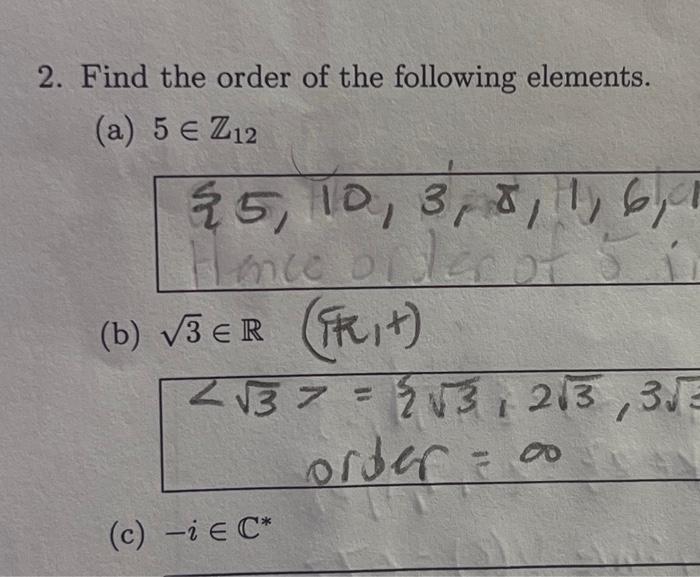 2. Find the order of the following elements.
(a) 5 ∈ ℤ₁₂
{5, 10, 3, 8, 1, 6,
Hence order of 5 i
(b) √3 ∈ ℝ (ℝ,+)
<√3> = {√3, 2√3, 3√3
order = ∞
(c) −i ∈ ℂ*